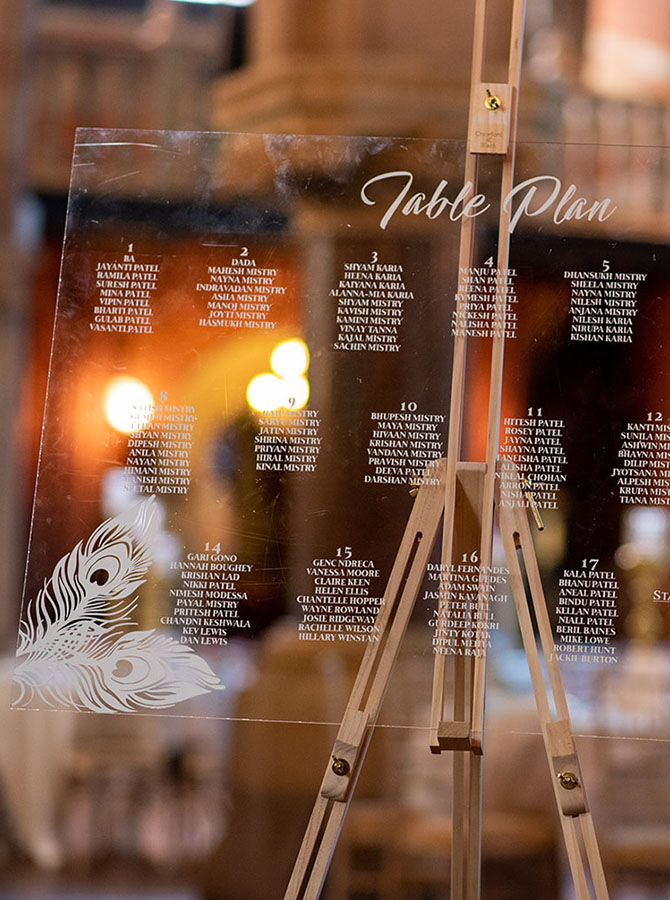 Table Plan
1
BA
JAYANTI PATEL
RAMILA PATEL
SURESH PATEL
MINA PATEL
VIPIN PATEL
BHARTI PATEL
GULAB PATEL
VASANTI PATEL
2
DADA
MAHESH MISTRY
NAYNA MISTRY
INDRAVADAN MISTRY
ASHA MISTRY
MANOJ MISTRY
JOYTI MISTRY
HASMUKH MISTRY
3
SHYAM KARIA
HEENA KARIA
KAIYANA KARIA
ALANNA-MIA KARIA
SHYAM MISTRY
KAVISH MISTRY
KAMINI MISTRY
VINAY TANNA
KAJAL MISTRY
SACHIN MISTRY
4
MANJU PATEL
SHAN PATEL
REENA PATEL
KYMESH PATEL
PRIYA PATEL
NICKESH PATEL
NALISHA PATEL
MANESH PATEL
5
DHANSUKH MISTRY
SHEELA MISTRY
NAYNA MISTRY
NILESH MISTRY
ANJANA MISTRY
NILESH KARIA
NIRUPA KARIA
KISHAN KARIA
8
SATISH MISTRY
MISTRY
MISTRY
SHYAN MISTRY
DIPESH MISTRY
ANILA MISTRY
NAYAN MISTRY
HIMANI MISTRY
MISTRY
MISTRY
9
MISTRY
SARYU MISTRY
JATIN MISTRY
SHRINA MISTRY
PRIYAN MISTRY
HIRAL MISTRY
KINAL MISTRY
10
BHUPESH MISTRY
MAYA MISTRY
HIVAAN MISTRY
KRISHAN MISTRY
VANDANA MISTRY
PRAVISH MISTRY
DEEVA PATEL
DARSHAN MISTRY
11
HITESH PATEL
ROSEY PATEL
JAYNA PATEL
SHAYNA PATEL
TANEISHA PATEL
ALISHA PATEL
CHOHAN
ARRON PATEL
PATEL
ANJALI PATEL
12
KANTI
SUNILA
ASHWIN
BHAVNA
DILIP
JYOTSANA M
ALPESH MIST
KRUPA MIST
TIANA MIST
14
GARI GONO
HANNAH BOUGHEY
KRISHAN LAD
NIKKI PATEL
NIMESH MODESSA
PAYAL MISTRY
PRITESH PATEL
CHANDNI KESHWALA
KEV LEWIS
DAN LEWIS
15
GENC NDRECA
VANESSA MOORE
CLAIRE KEEN
HELEN ELLIS
CHANTELLE HOPPER
WAYNE ROWLAND
JOSIE RIDGEWAY
RACHELLE WILSON
HILLARY WINSTAN
16
DARYL FERNANDES
MARTINA GUEDES
ADAM SWAIN
JASMIN KAVANAGH
PETER BULL
NATALIA BULL
GURDEEP KOKRI
JINTY KOTAK
DIPUL MEHTA
NEENA RAJA
17
KALA PATEL
BHANU PATEL
ANEAL PATEL
BINDU PATEL
KEELAN PATEL
NIALL PATEL
BERIL BAINES
MIKE LOWE
ROBERT HUNT
JACKIE BURTON
STA